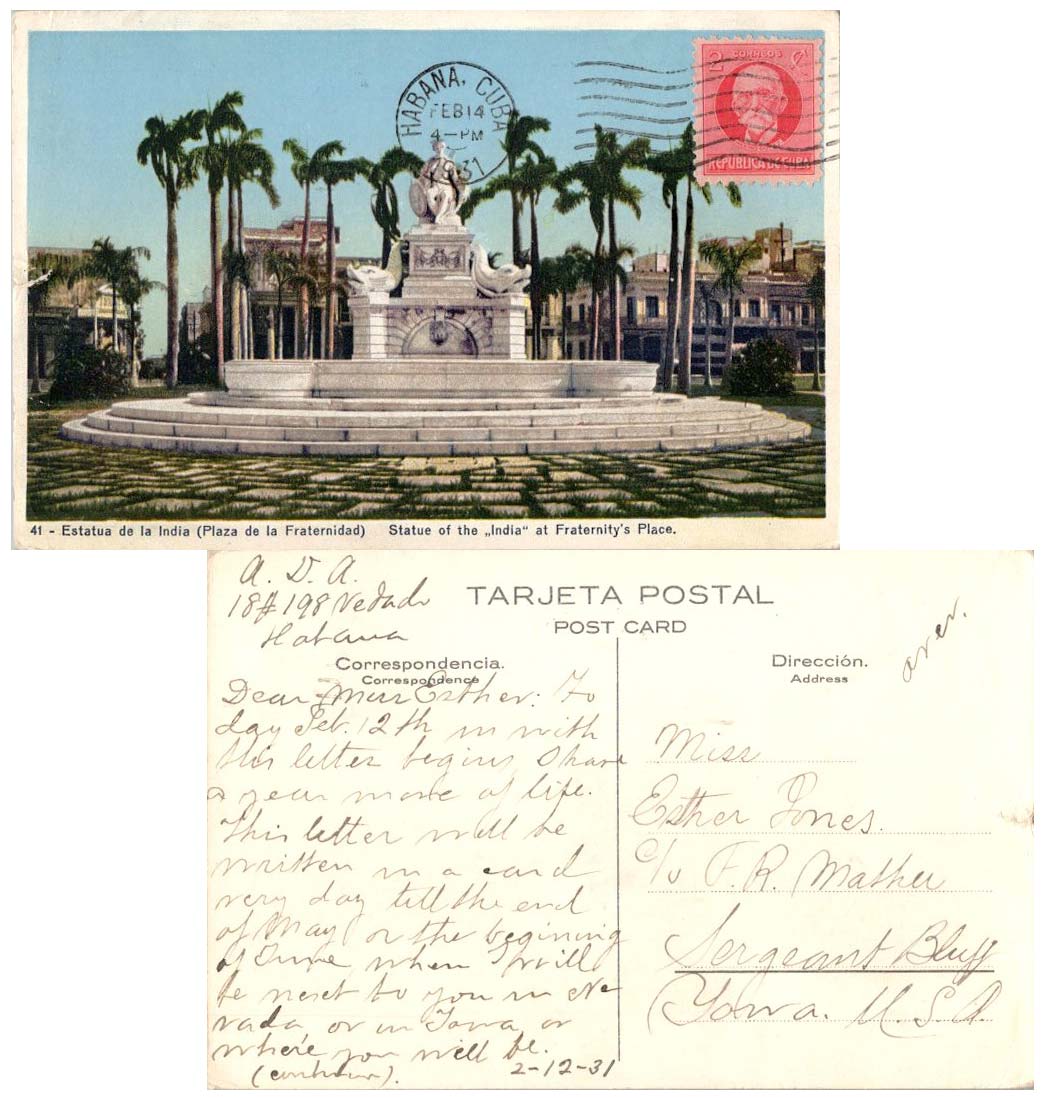 HABANA, CUBA
FEB 14
4-PM
31
CORREOS
2 ¢
REPUBLICA DE CUBA
41 - Estatua de la India (Plaza de la Fraternidad) Statue of the „India“ at Fraternity's Place.
A. D. A.
18 # 198 Vedado
Habana
TARJETA POSTAL
POST CARD
over.
Correspondencia.
Correspondence
Dear Miss Esther: To
day Feb. 12th in with
this letter begins I have
a year more of life.
This letter will be
written in a card
very day till the end
of May or the begining
of June when I will
be next to you in Ne
vada or in Iowa or
where you will be.
(continue).
2-12-31
Dirección.
Address
Miss
Esther Jones.
c/o F. R. Mather
Sergeant Bluff
(Iowa. U. S. A.